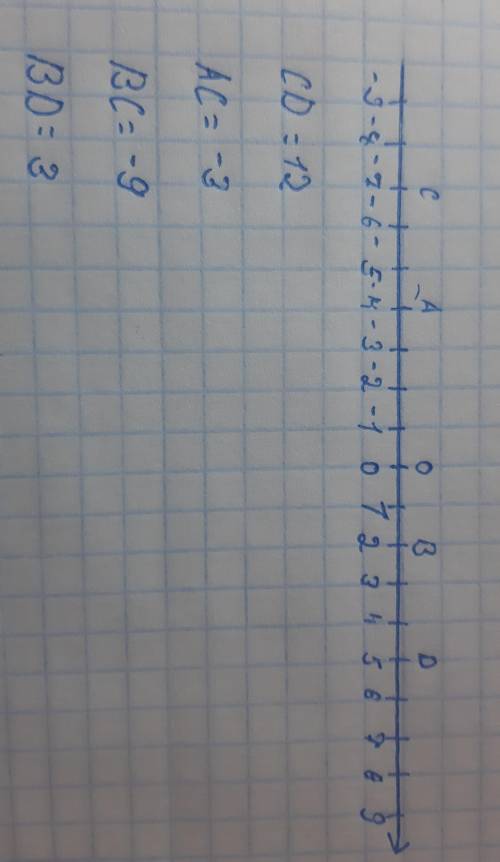 C A O B D
-9 -8 -7 -6 -5 -4 -3 -2 -1 0 1 2 3 4 5 6 7 8 9
CD = 12
AC = -3
BC = -9
BD = 3